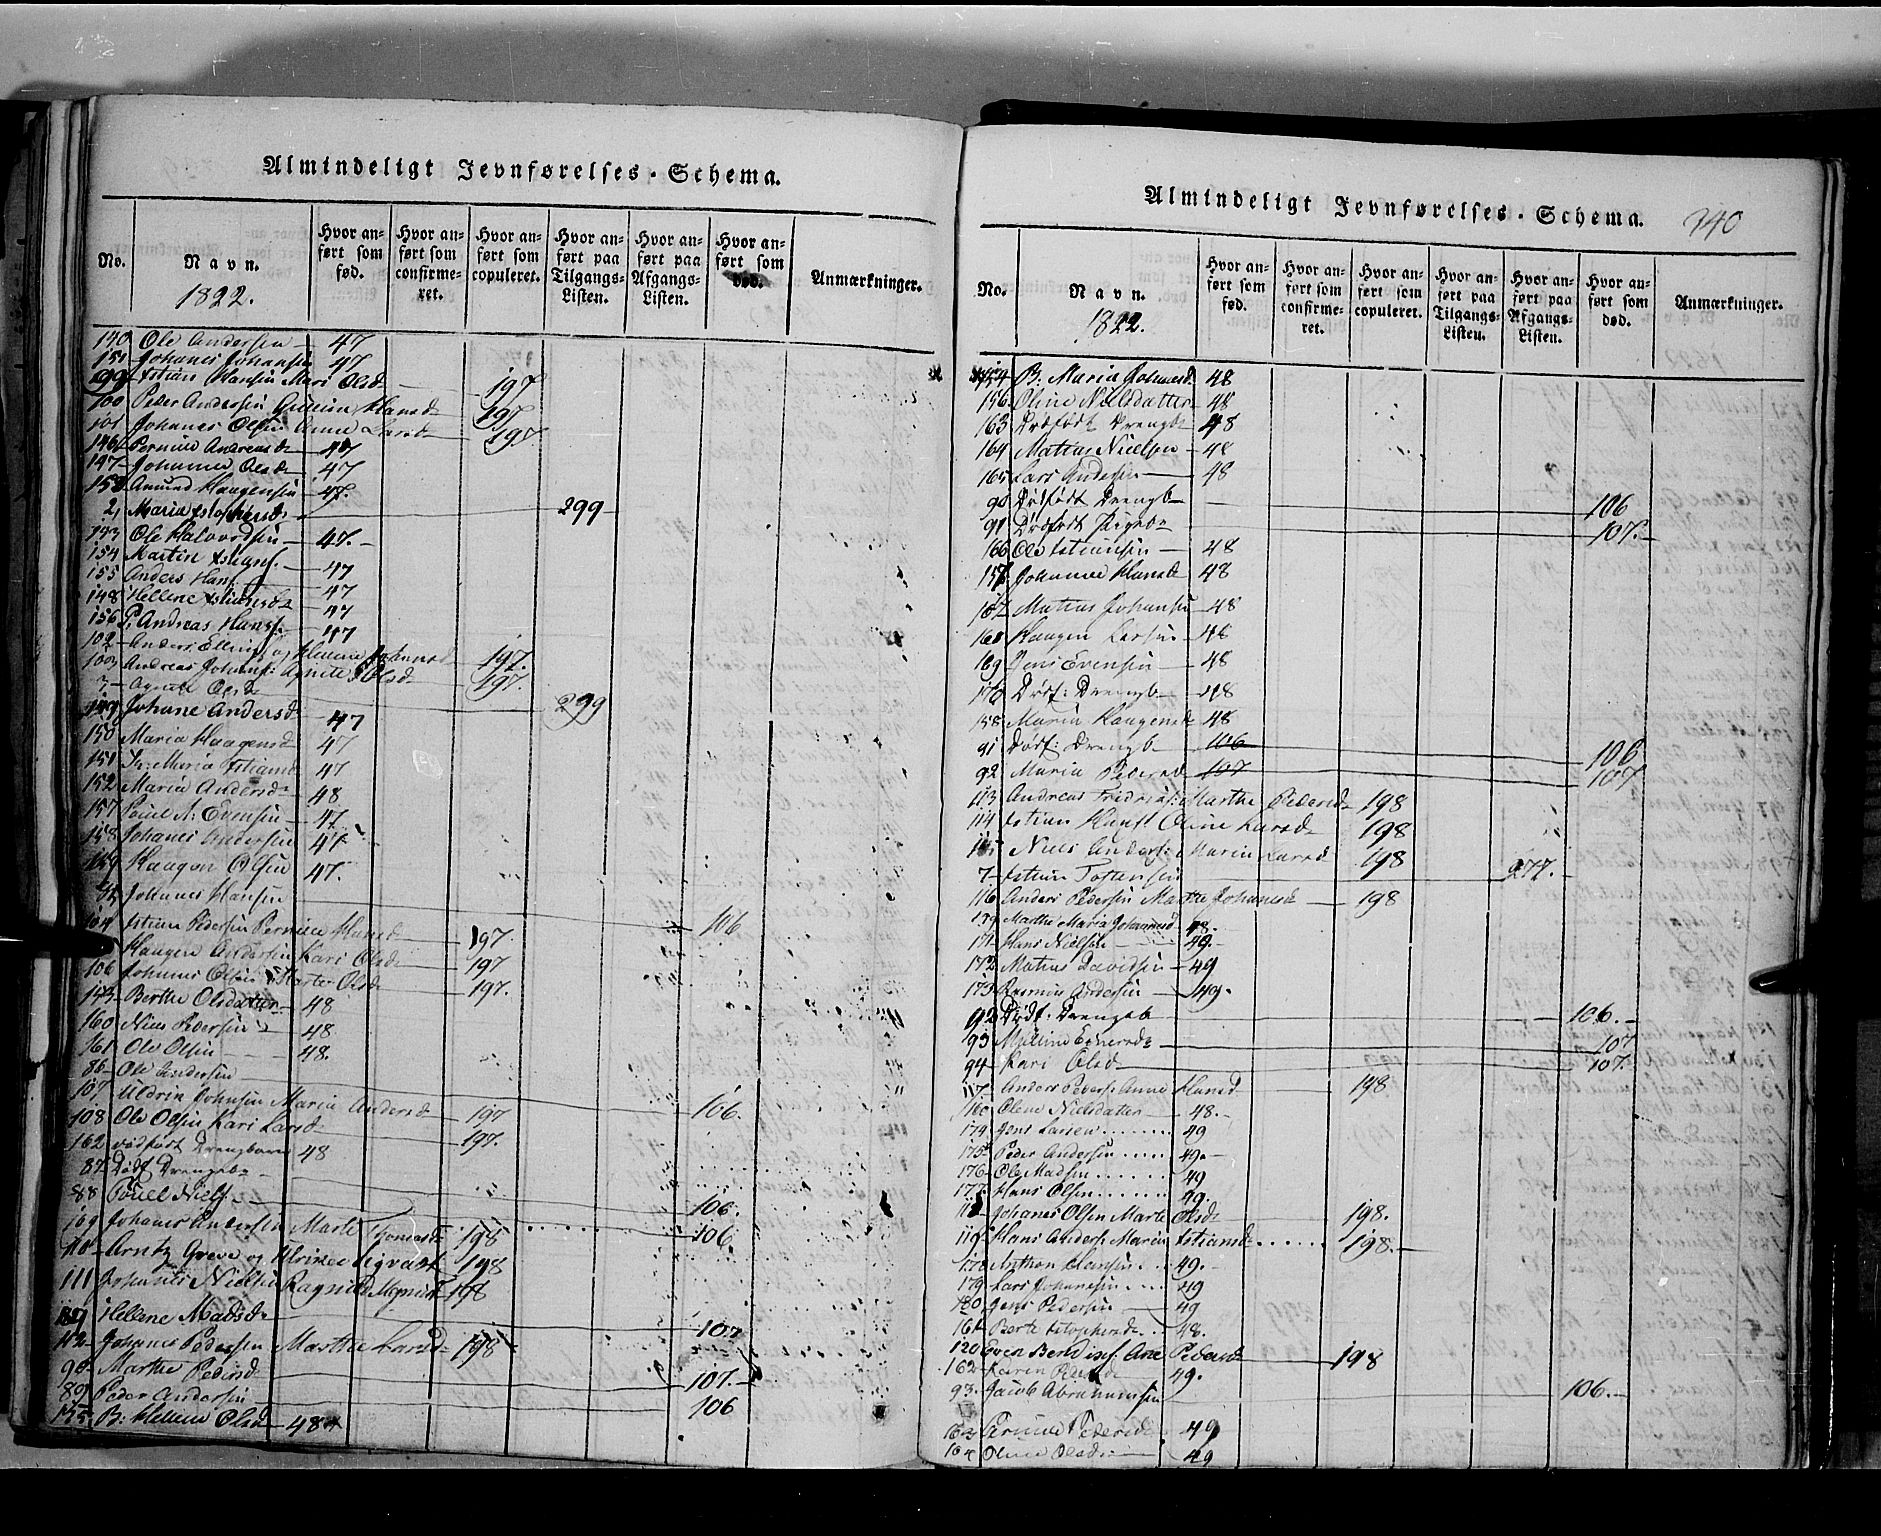 Almindeligt Jevnførelses-Schema.
No. Navn. 1822. Hvor anført som fød. Hvor anført som confirmeret. Hvor anført som copuleret. Hvor anført paa Tilgangs-Listen. Hvor anført paa Afgangs-Listen. Hvor anført som død. Anmærkninger.
140 Ole Andersen 47
151 Johanes Johansen 47
99 Hansen Mari Olsd 197
100 Peder Andersen Hansd 197
101 Johanes Olsen Anne Larsd 197
146 Pernille Andreasd 47
147 Johanne Olsd 47
152 Amund Haagensen 47.
2, Maria 299
153 Ole Halvordsen 47.
154 Martin 47
155 Anders Hans. 47
148 Hellene 47
156 P. Andreas Hans. 47
102 Anders Elling. og Hellene Johannsd 197.
103 Andreas Johans: Agnete Olsd 197.
3 Agnete Olsd 299
149 Johane Andersd 47
150 Maria Haagensd 47
151 Maria 47
152 Maria Andersd 48
157 Poul A: Evensen 47
158 Johanes Andersen 47
159 Haagen Olsen 47.
Johannes Hansen 106
104 Pedersen Pernille Hansd 197.
Haagen Andersen Kari Olsd 197
106 Johannes Olsen Marte Olsd 197.
143 Berthe Olsdatter 48
160 Niels Pedersen 48
161 Ole Olsen 48.
86 Ole Andersen 106.
107 Johnsen Maria Andersd 197
108 Ole Olsen Kari Larsd 197.
162 Dødfødt Drengbarn 48
87 Dødf Drengeb 106.
88 Poul Niels. 106
109 Johanes Andersen Marte Thomasd 198
110 Arntz Greve og 198
111 Johanes Nielsen Ragnild 198
89 Hellene Madsd 107
112 Johanes Pedersen Marthe Larsd 198
90 Marthe Pedersd 107.
89 Peder Andersen 106
155 B: Hellene Olsd 48
Almindeligt Jevnførelses-Schema. 340
No. Navn. 1822. Hvor anført som fød. Hvor anført som confirmeret. Hvor anført som copuleret. Hvor anført paa Tilgangs-Listen. Hvor anført paa Afgangs-Listen. Hvor anført som død. Anmærkninger.
154 B. Maria Johannesd 48
156 Oline Nielsdatter 48
163 Dødfødt Drengeb 48
164 Matias Nielsen 48
165 Lars Andersen 48
90 Dødfødt Drengb 106
91 Dødfødt Pigeb 107.
166 Ole 48
157 Johanne Hansd 48
167 Matias Johansen 48
168 Haagen Larsen 48
169 Jens Evensen 48
170 Dødf: Drengb 48
158 Maria Haagensd 48
91 Dødf: Drengb 106 106
92 Maria Pedersd 107 107
113 Andreas Fredrics: Marthe Pedersd 198
114 Hans. Oline Larsd 198
115 Niels Anders: Maria Larsd 198
7 Tostensen 277.
116 Anders Pedersen Marthe Johansd 198
159 Marthe Maria Johannesd 48.
171 Hans Nielsen 49.
172 Matias Davidsen 49
173 Rasmus Andersen 49.
92 Dødf. Drengeb 106.
93 Einersd 107
94 Kari Olsd 107.
117. Anders Peders. Anne Hansd 198
160 Olene Nielsdatter 48.
174 Jens Larsen 49
175 Peder Andersen 49.
176 Ole Madsen 49
177 Hans Olsen 49.
118 Johanes Olsen Marte Olsd 198.
119 Hans Anders. Maria 198.
178 Anthon Hansen 49.
179 Lars Johansen 49
180 Jens Pedersen 49
161 Berte 48.
120 Even Ane Pedersd 198
162 Karen 49.
93. Jacob Abrahamsen 106.
163 Pernille Pedersd 49
164 Oline Olsd 49